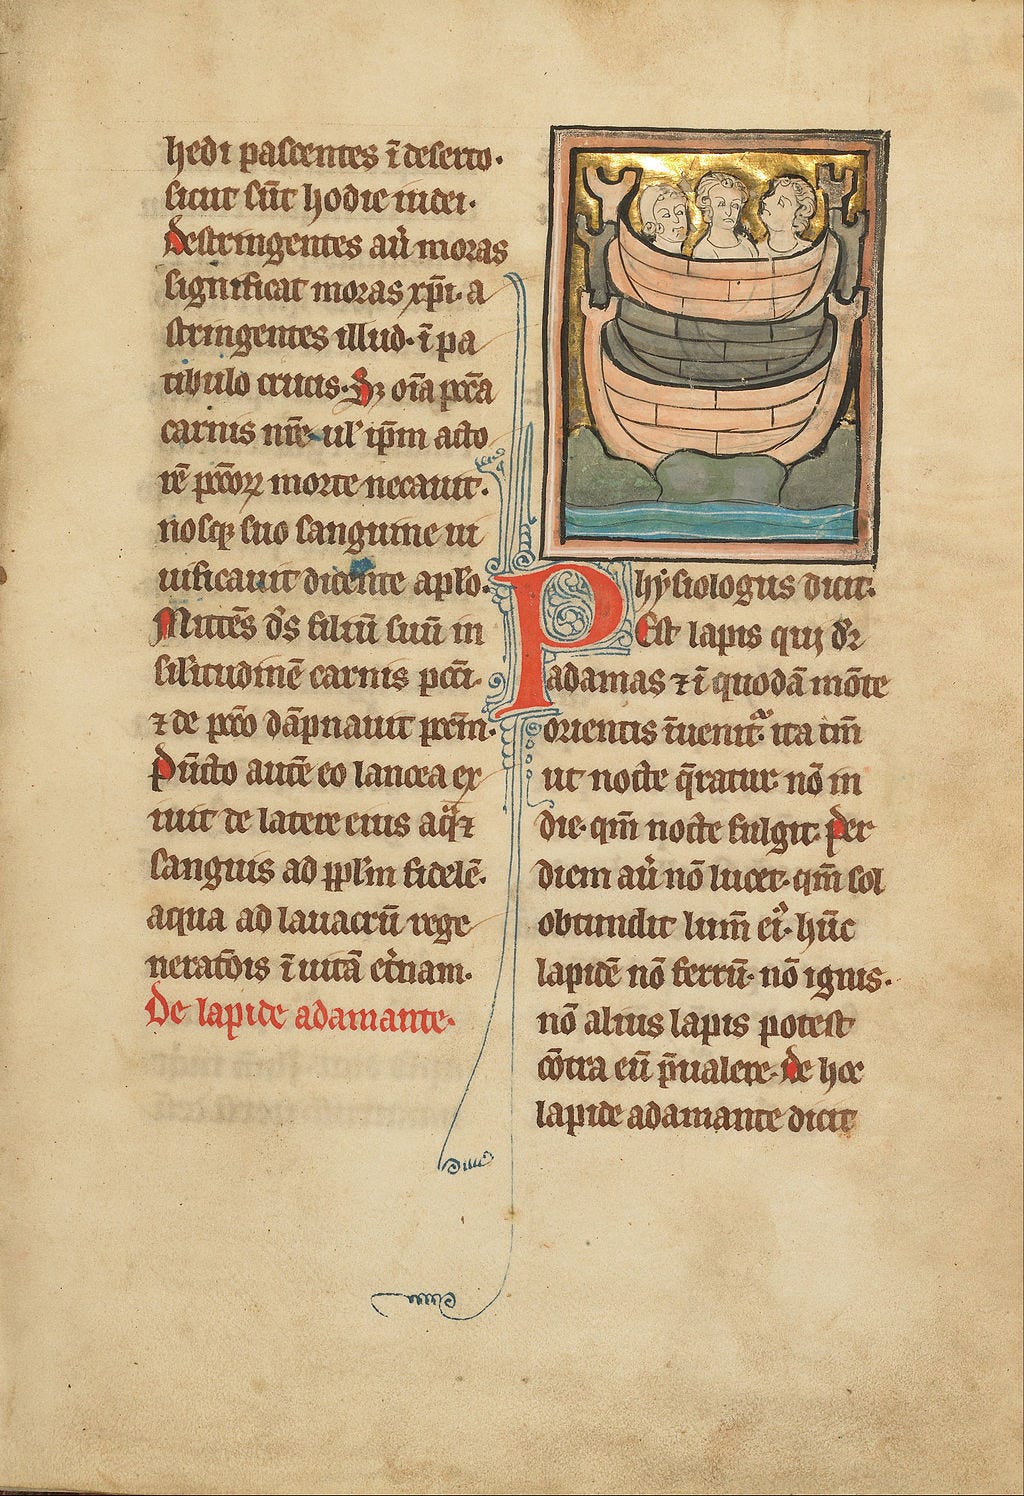 hedi pascentes ī deserto.
sicut sūt hodie iudei.
destringentes aū moras
significat moras xp̄i. a
stringentes illud. ī pa
tibulo crucis. Sꝫ oīa pc̄ca
carnis nr̄e ul' ip̄m acto
rē pc̄coꝝ morte necauit.
nosqꝫ suo sanguine ui
uificauit dicente aplo.
Mittēs d̄s filiū suū in
sil'itudinē carnis pc̄ci.
⁊ de pc̄co dāpnauit pc̄tm̄.
Pūcto autē eo lancea ex
iuit de latere eius aq̄ ⁊
sanguis ad ppl'm fidelē.
aqua ad lauacrū rege
neratōis ī uitā et̄nam.
De lapide adamante.
Physiologus dicit.
Est lapis qui dr̄
adamas ⁊ ī quodā mōte
orientis īuenit᷑. ita tm̄
ut nocte q̄ratur nō in
die. qm̄ nocte fulgit. Per
diem aū nō lucet. qm̄ sol
obtundit lum̄ ei᷑. hūc
lapidē nō ferrū. nō ignis.
nō alius lapis potest
cōtra eū p̄ualere. De hoc
lapide adamante dicit